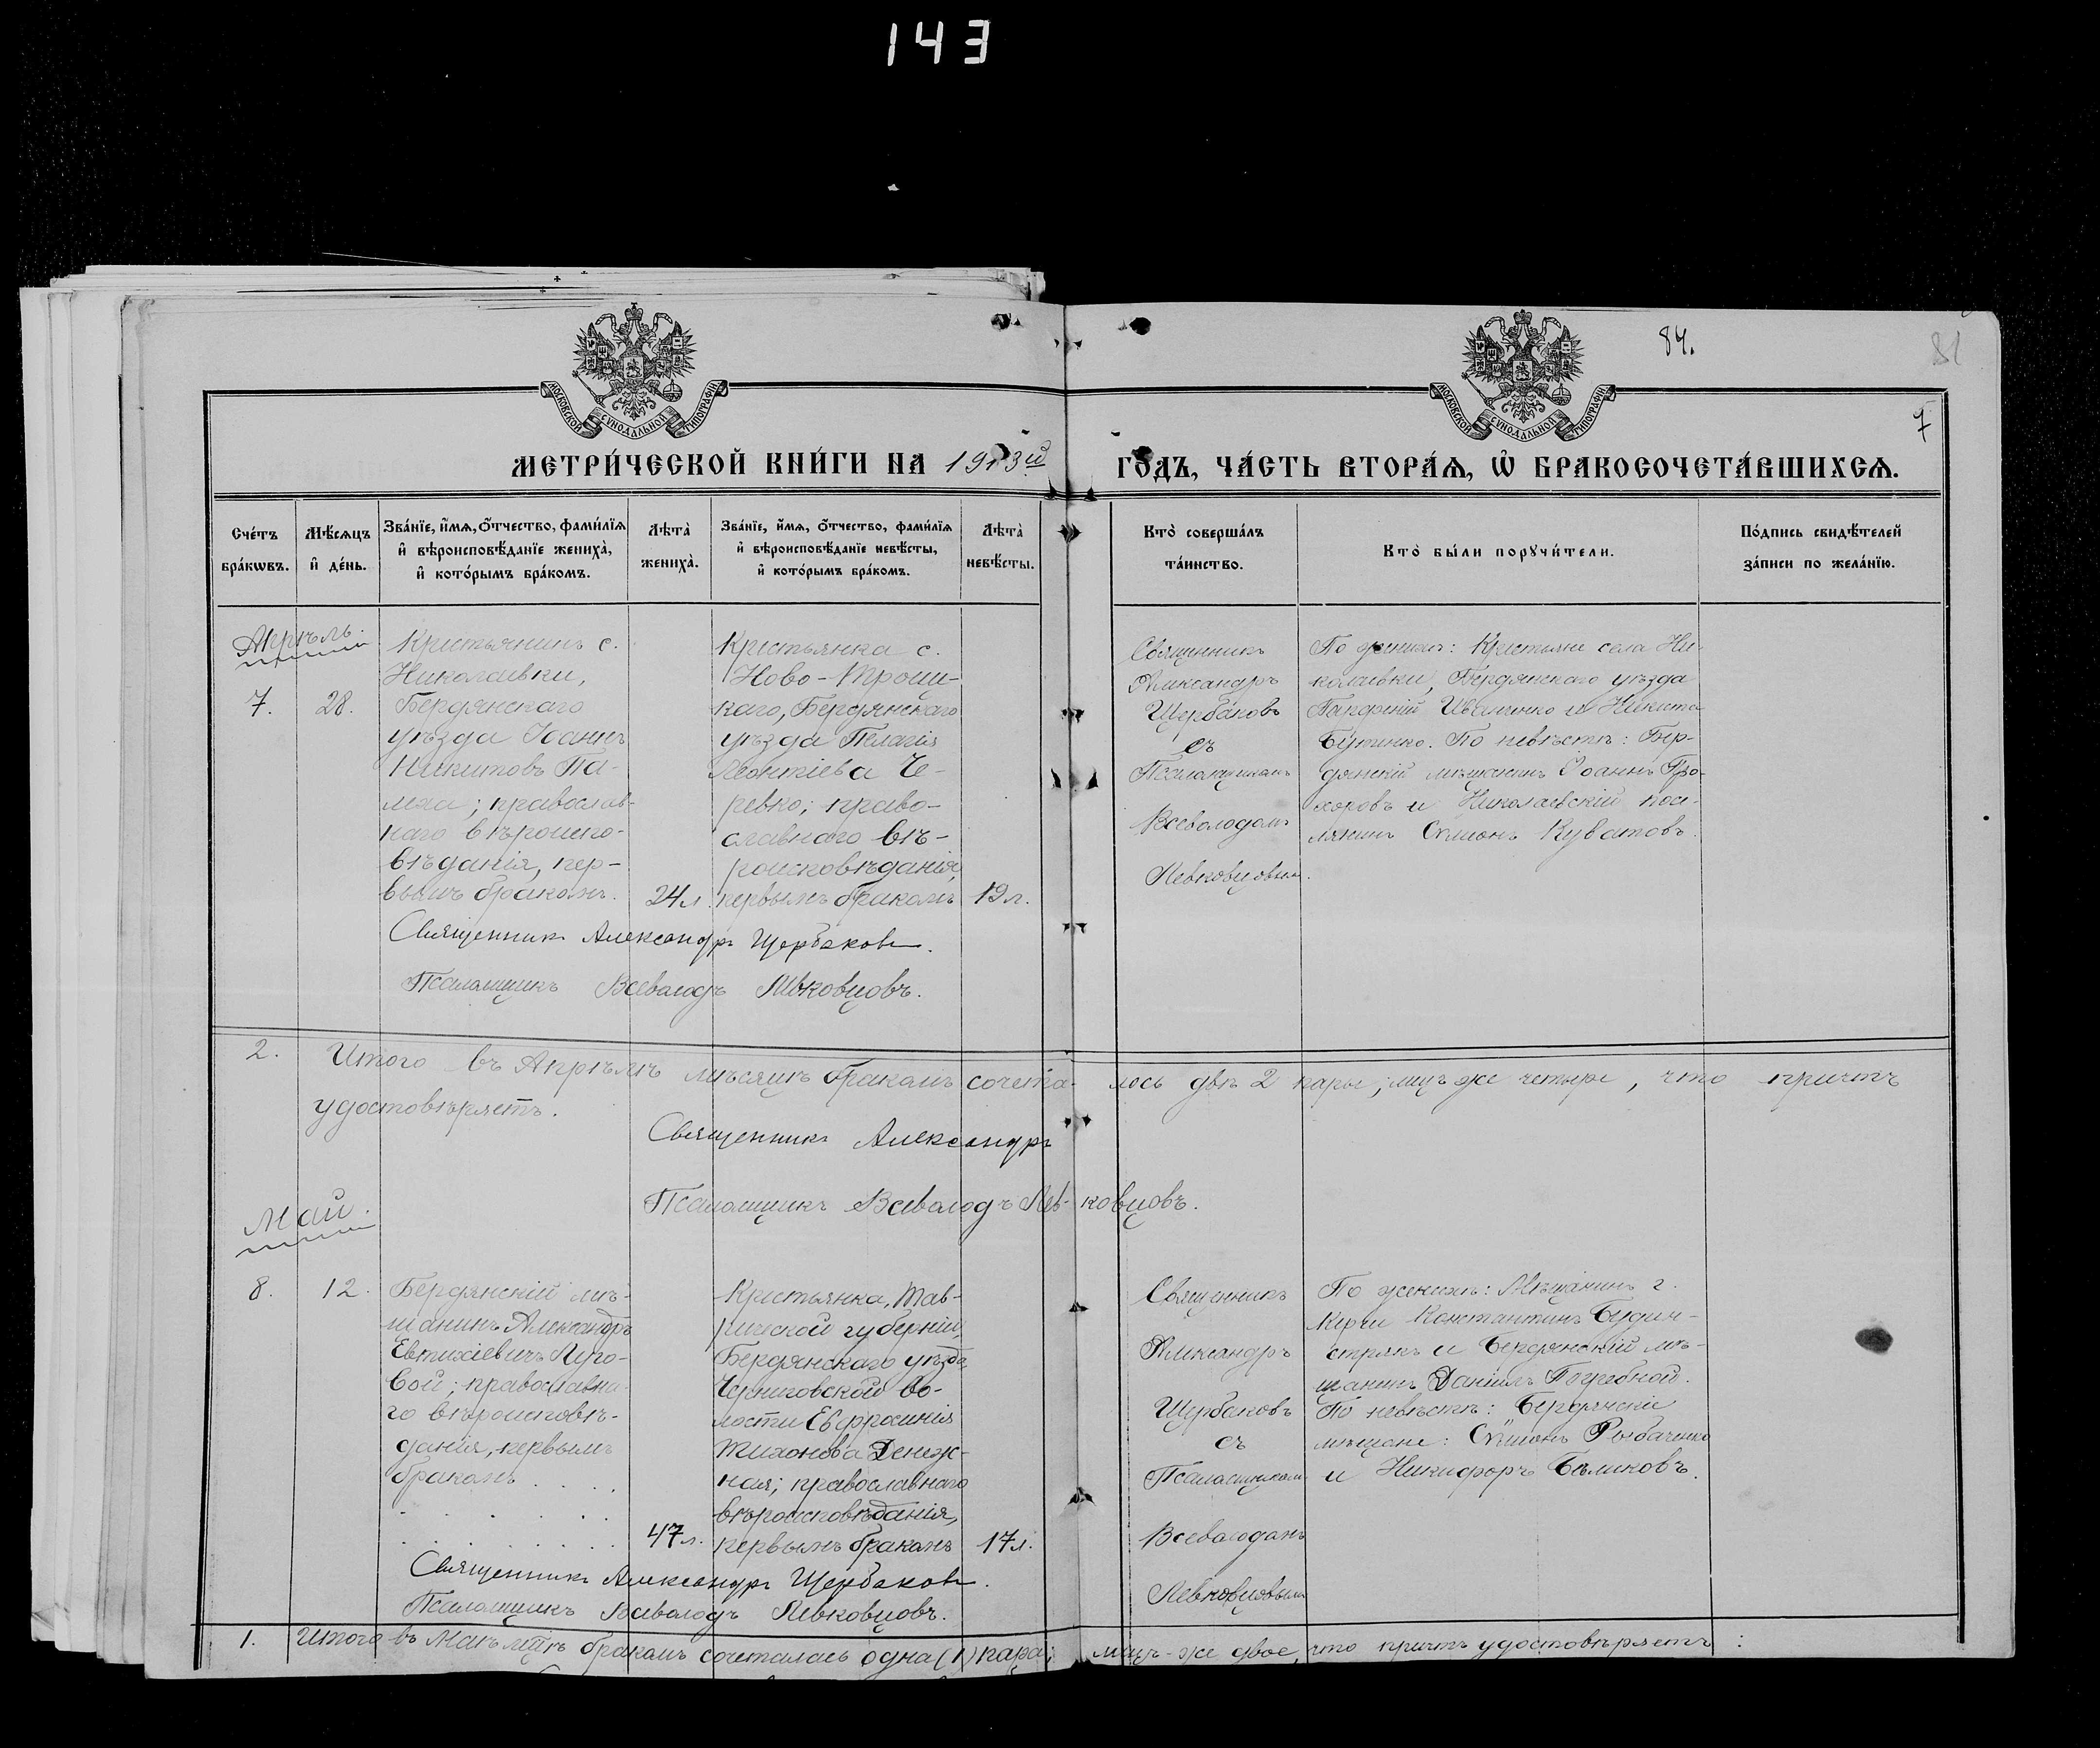 143
84.
81
7
МОСКОВСКОЙ СѴНОДАЛЬНОЙ ТИПОГРАФІИ
МОСКОВСКОЙ СѴНОДАЛЬНОЙ ТИПОГРАФІИ
МЕТРИ́ЧЕСКОЙ КНИ́ГИ НА 1913й ГО́ДЪ, ЧА́СТЬ ВТОРА́Ѧ, Ѽ БРАКОСОЧЕТА́ВШИХСѦ.
Сче́тъ
бра́кѡвъ.
Мѣ́сѧцъ
и҆ де́нь.
Зва́нїе, и҆́мѧ, ѻ҆́тчество, фами́лїѧ
и҆ вѣроисповѣ́данїе жениха̀,
и҆ кото́рымъ бра́комъ.
Лѣта̀
жениха̀.
Зва́нїе, и҆́мѧ, ѻ҆́тчество, фами́лїѧ
и҆ вѣроисповѣ́данїе невѣ́сты,
и҆ кото́рымъ бра́комъ.
Лѣта̀
невѣ́сты.
Кто̀ соверша́лъ
та́инство.
Кто̀ бы́ли порꙋчи́тели.
По́дпись свидѣ́телей
за́писи по жела́нїю.
Апрѣль.
7.
28.
Крестьянинъ с.
Николаевки,
Бердянскаго
уѣзда Іоаннъ
Никитовъ Па-
православ-
наго вѣроиспо-
вѣданія, пер-
вымъ бракомъ.
24 л.
Крестьянка с.
Ново-Троиц-
каго, Бердянскаго
уѣзда Пелагія
Леонтіева Че-
ревко; право-
славнаго вѣ-
роисповѣданія,
первымъ бракомъ
19 л.
Священникъ
Александръ
Щербаковъ
съ
Псаломщикомъ
Всеволодомъ
Левковцовымъ.
По женихѣ: Крестьяне села Ни-
колаевки, Бердянскаго уѣзда
Иваненко и Никита
Бутенко. По невѣстѣ: Бер-
дянскій мѣщанинъ Іоаннъ Про-
хоровъ и Николаевскій посе-
лянинъ Сѵмеонъ Куватовъ.
Священникъ Александръ Щербаковъ.
Псаломщикъ Всеволодъ Левковцовъ.
2. Итого въ Апрѣлѣ мѣсяцѣ бракомъ сочета- лось двѣ 2 пары, лицъ же четыре, что причтъ
удостовѣряетъ.
Священникъ Александръ
Псаломщикъ Всеволодъ Лев- ковцовъ.
Май.
8.
12.
Бердянскій мѣ-
щанинъ Александръ
Евтихіевичъ Луго-
вой; православна-
го вѣроисповѣ-
данія, первымъ
бракомъ . . . .
47 л.
Крестьянка, Тав-
рической губерніи,
Бердянскаго уѣзда
Черниговской во-
лости Евфросинія
Тихонова Денеж-
ная; православнаго
вѣроисповѣданія,
первымъ бракомъ
17 л.
Священникъ
Александръ
Щербаковъ
съ
Псаломщикомъ
Всеволодомъ
Левковцовымъ
По женихѣ: Мѣщанинъ г.
Керчи Константинъ
и Бердянскій мѣ-
щанинъ Даніилъ Погребной.
По невѣстѣ: Бердянскіе
мѣщане: Сѵмеонъ Рыбаченко
и Никифоръ Бѣликовъ.
Священникъ Александръ Щербаковъ.
Псаломщикъ Всеволодъ Левковцовъ.
1. Итого въ Маѣ м-цѣ бракомъ сочеталась одна (1) пара; лицъ-же двое, что причтъ удостовѣряетъ: